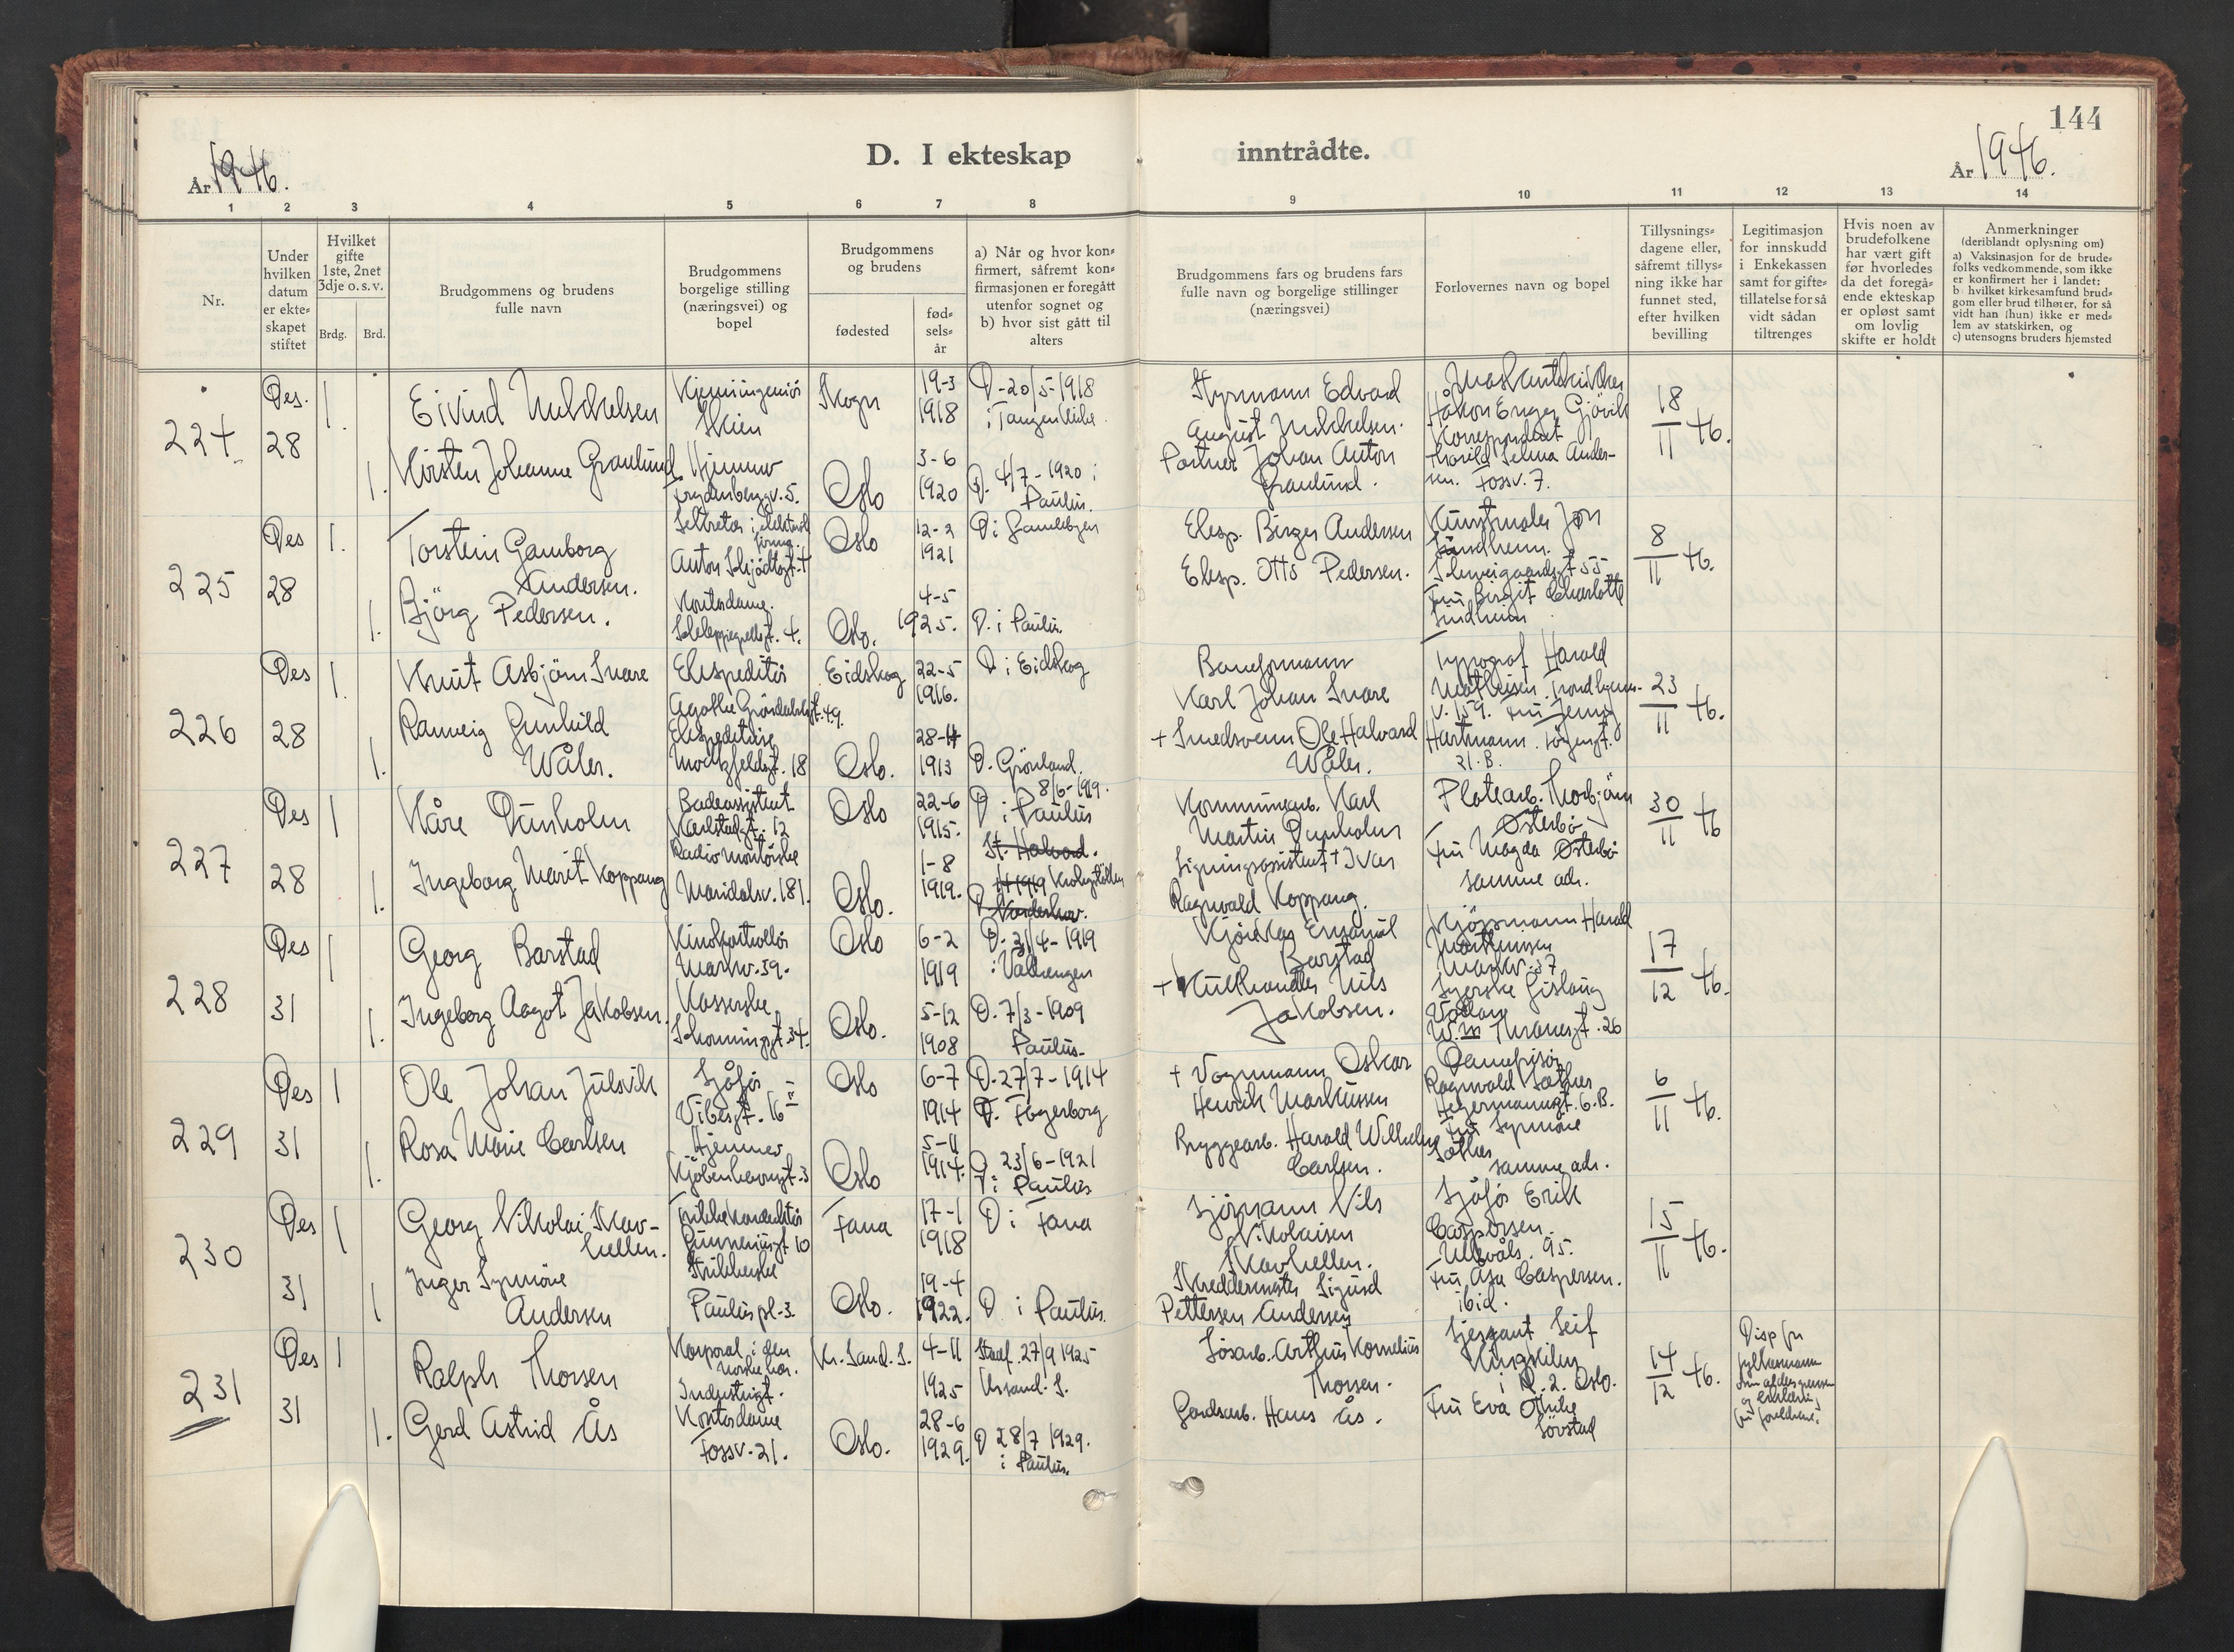 144
D. I ekteskap inntrådte.
År 1946.
År 1946.
1 2 3 4 5 6 7 8 9 10 11 12 13 14
Nr.
Under hvilken datum er ekte-skapet stiftet
Hvilket gifte 1ste, 2net 3dje o. s. v.
Brdg. Brd.
Brudgommens og brudens fulle navn
Brudgommens borgelige stilling (næringsvei) og bopel
Brudgommens og brudens
fødested
fød-sels-år
a) Når og hvor kon-firmert, såfremt kon-firmasjonen er foregått utenfor sognet og b) hvor sist gått til alters
Brudgommens fars og brudens fars fulle navn og borgelige stillinger (næringsvei)
Forlovernes navn og bopel
Tillysnings-dagene eller, såfremt tillys-ning ikke har funnet sted, efter hvilken bevilling
Legitimasjon for innskudd i Enkekassen samt for gifte-tillatelse for så vidt sådan tiltrenges
Hvis noen av brudefolkene har vært gift før hvorledes da det foregå-ende ekteskap er opløst samt om lovlig skifte er holdt
Anmerkninger (deriblandt oplysning om) a) Vaksinasjon for de brude-folks vedkommende, som ikke er konfirmert her i landet: b) hvilket kirkesamfund brud-gom eller brud tilhører, for så vidt han (hun) ikke er med-lem av statskirken, og c) utensogns bruders hjemsted
224
Des. 28
1.
Eivind Mikkelsen
Kjemiingeniør
Skien
Skogn
19-3 1918
D-20/5-1918
i Tangen kirke
Styrmann Edvard
August Mikkelsen.
Håkon Enger Gjövik
18/11 46.
1.
Kirsten Johanne Granlund
Hjemme
Frydenbergv. 5.
Oslo
3-6 1920
D. 4/7-1920 i
Paulus.
Portner Johan Anton
Granlund.
Korrespondent
Thorild Selma Ander-
sen. Fossv. 7.
225
Des 28
1.
Torstein Gamborg
Andersen.
Sekretær i elektrisk
firma.
Anton Schjödtsgt. 4
Oslo
12-2 1921
D i Gamlebyen
Eksp. Birger Andersen
Kunstmaler Jon
Sundheim.
Schweigaardsgt 55
8/11 46.
1.
Björg Pedersen.
Kontordame.
Schleppegrellsgt. 4.
Oslo.
4-5 1925.
D. i Paulus.
Eksp. Otto Pedersen.
Fru Birgit Charlotte
Sundheim
226
Des 28
1.
Knut Asbjörn Snare
Ekspeditör
Agathe Gröndalsgt. 49.
Eidskog
22-5 1916.
D i Eidskog
Baneformann
Karl Johan Snare
Typograf Harald
Mathisen. Trondhjems-
v. 159. Fru Jenny
23/11 46.
1.
Ranveig Gunhild
Wåler.
Ekspeditrise
Motzfeldtsgt. 18
Oslo.
28-11 1913
D. Grönland.
+ Smedsvenn Ole Halvard
Wåler.
Hartmann.
21. B.
227
Des 28
1
Kåre Dunholm
Badeassistent
Karlstadgt. 12
Oslo
22-6 1915.
8/6-1919.
D i Paulus
Kommunearb. Karl
Martin Dunholm
Platearb. Thorbjörn
Österbö
30/11 46
1.
Ingeborg Marit Koppang
Radiomontörske
Maridalsv. 181.
Oslo.
1-8 1919.
St. Halvard.
Ligningsassistent + Ivar
Ragnvald Koppang.
Fru Magda Österbö
samme adr.
228
Des 31
1
Georg Barstad
Kinokontrollör
Markv. 39.
Oslo
6-2 1919
D. 31/4-1919
i Vålerengen
Kjörekar Emanuel
Barstad
Kjöpmann Harald
Markussen
Markv. 37
17/12 46.
1.
Ingeborg Aagot Jakobsen.
Kasserske
Schouningsgt. 34.
Oslo.
5-12 1908
D. 7/3-1909
Paulus.
+ Kulhandler Nils
Jakobsen.
Syerske Gislaug
Wm Thranesgt. 26
229
Des 31
1
Ole Johan Julsvik
Sjåför
Vibesgt. 16
Oslo
6-7 1914
D. 27/7-1914
D. Fagerborg
+ Vognmann Oskar
Henrik Markussen
Damefrisör
Ragnvald Sæther
Hegermannsgt. 6. B.
6/11 46.
1.
Rosa Marie Carlsen
Hjemme
Kjöbenhavngt. 3
Oslo
5-11 1914.
D 23/6-1921
i Paulus
Bryggearb. Harald Wilhelm
Carlsen.
Fru Synnöve
Sæther
samme adr.
230
Des 31
1
Georg Nikolai Skav-
hellen.
Trikkekonduktör
Gunneriusgt 10
Fana
17-1 1918
D i Fana
Sjömann Nils
Nikolaisen
Skavhellen.
Sjåför Erik
Caspersen.
Ullevåls. 95.
15/11 46.
1
Inger Synnöve
Andersen
Strikkerske
Paulus pl. 3.
Oslo.
19-4 1922.
D i Paulus.
Skreddermester Sigurd
Pettersen Andersen
Fru Åsa Caspersen.
ibid.
231
Des 31
1
Ralph Thorsen
Korporal i den
norske hær.
Industrigt.
Kr. Sand. S.
4-11 1925
27/9 1925
Krsand. S.
Losarb. Arthur Kornelius
Thorsen.
Sjersant Leif
i R. 2. Oslo.
14/12 46.
Disp fra
fylkesmann
1.
Gerd Astrid Ås
Kontordame
Fossv. 21.
Oslo.
28-6 1929.
D 28/7 1929.
i Paulus.
Gardsarb. Hans Ås.
Fru Eva Othilie
Sörstad